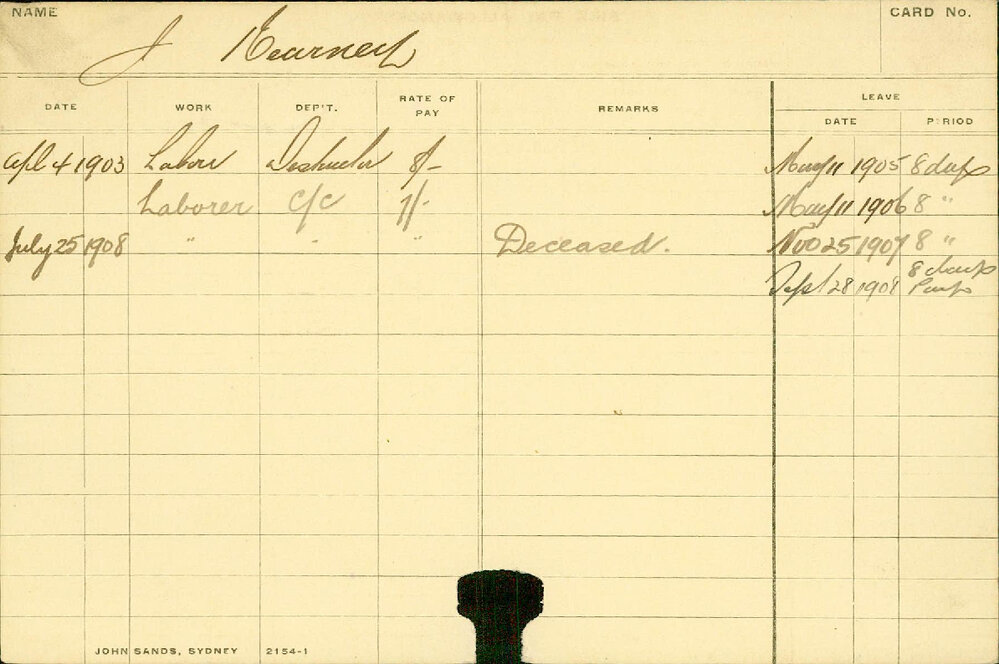 NAME J Kearney CARD No.
DATE WORK DEP'T. RATE OF PAY REMARKS LEAVE
DATE PERIOD
Apl 4 1903 Labour Destructor 8/- May 11 1905 8 days
Laborer C/C 7/- May 11 1906 8 "
July 25 1908 " " " Deceased. Nov 25 1907 8 "
8 days
Sept 28 1908
JOHN SANDS, SYDNEY 2154-1